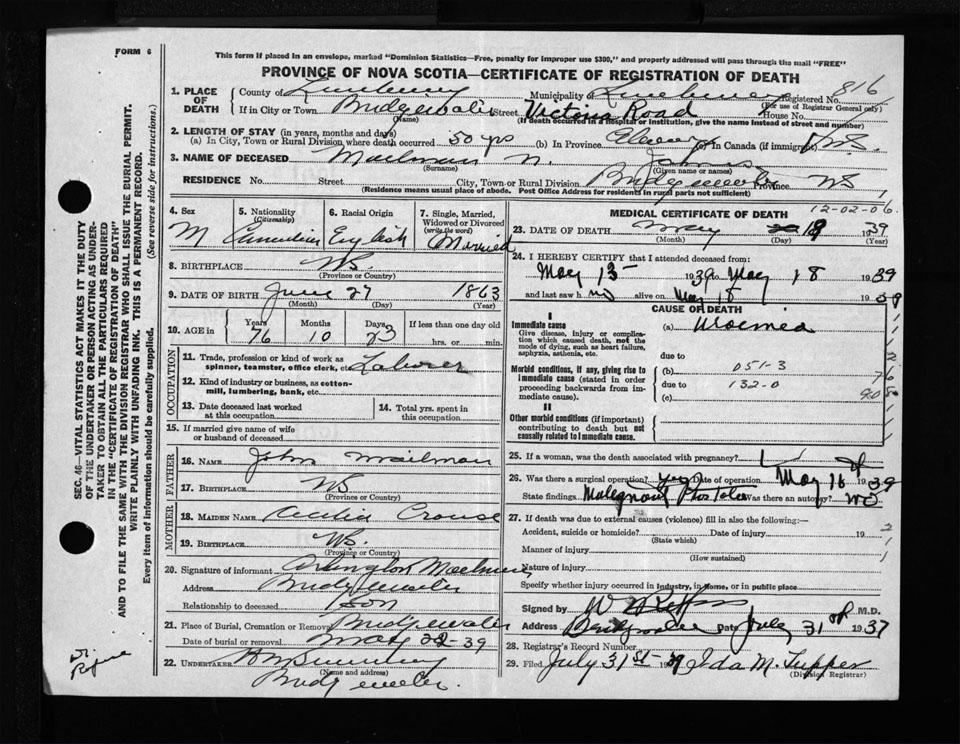 FORM 6
This form if placed in an envelope, marked "Dominion Statistics—Free, penalty for improper use $300," and properly addressed will pass through the mail "FREE"
PROVINCE OF NOVA SCOTIA—CERTIFICATE OF REGISTRATION OF DEATH
SEC. 46—VITAL STATISTICS ACT MAKES IT THE DUTY
OF THE UNDERTAKER OR PERSON ACTING AS UNDER-
TAKER TO OBTAIN ALL THE PARTICULARS REQUIRED
IN THE "CERTIFICATE OF REGISTRATION OF DEATH"
AND TO FILE THE SAME WITH THE DIVISION REGISTRAR WHO SHALL ISSUE THE BURIAL PERMIT.
WRITE PLAINLY WITH UNFADING INK. THIS IS A PERMANENT RECORD.
Every item of information should be carefully supplied. (See reverse side for instructions.)
1. PLACE OF DEATH County of Lunenburg Municipality Lunenburg Registered No. 816
(For use of Registrar General only)
If in City or Town Bridgewater Street Victoria Road House No.
(Name) (If death occurred in a hospital or institution, give the name instead of street and number)
2. LENGTH OF STAY (in years, months and days)
(a) In City, Town or Rural Division where death occurred 50 yrs (b) In Province (c) In Canada (if immigrant)
3. NAME OF DECEASED Mailman N. James
(Surname) (Given name or names)
RESIDENCE No. Street City, Town or Rural Division Bridgewater Province NS
(Residence means usual place of abode. Post Office Address for residents in rural parts not sufficient)
4. Sex M
5. Nationality (Citizenship) Canadian
6. Racial Origin English
7. Single, Married, Widowed or Divorced (write the word) Married
8. BIRTHPLACE NS
(Province or Country)
9. DATE OF BIRTH June 27 1863
(Month) (Day) (Year)
10. AGE in Years 76 Months 10 Days 23 If less than one day old hrs. or min.
OCCUPATION
11. Trade, profession or kind of work as spinner, teamster, office clerk, etc. Laborer
12. Kind of industry or business, as cotton-mill, lumbering, bank, etc.
13. Date deceased last worked at this occupation
14. Total yrs. spent in this occupation
15. If married give name of wife or husband of deceased
FATHER
16. NAME John Mailman
17. BIRTHPLACE NS
(Province or Country)
MOTHER
18. MAIDEN NAME Crouse
19. BIRTHPLACE NS
(Province or Country)
20. Signature of informant Arlington Mailman
Address Bridgewater
Relationship to deceased Son
21. Place of Burial, Cremation or Removal Bridgewater
Date of burial or removal May 22-39
22. UNDERTAKER
(Name and address)
Bridgewater.
MEDICAL CERTIFICATE OF DEATH
12-02-06.
23. DATE OF DEATH May 18 1939
(Month) (Day) (Year)
24. I HEREBY CERTIFY that I attended deceased from:
May 13 1939 to May 18 1939
and last saw him alive on May 18 1939
CAUSE OF DEATH
I
Immediate cause
Give disease, injury or complication which caused death, not the mode of dying, such as heart failure, asphyxia, asthenia, etc.
(a) Uraemia
due to
Morbid conditions, if any, giving rise to immediate cause (stated in order proceeding backwards from immediate cause).
(b) 051-3
due to 132-0
(c)
II
Other morbid conditions (if important) contributing to death but not causally related to immediate cause.
25. If a woman, was the death associated with pregnancy?
26. Was there a surgical operation? yes Date of operation May 16 1939
State findings Malignant Was there an autopsy? No
27. If death was due to external causes (violence) fill in also the following:—
Accident, suicide or homicide? Date of injury 19
(State which)
Manner of injury
(How sustained)
Nature of injury
Specify whether injury occurred in industry, in home, or in public place
Signed by M.D.
Address Bridgewater Date July 31st 1937
28. Registrar's Record Number
29. Filed July 31st 1939 Ida M. Tupper
(Division Registrar)